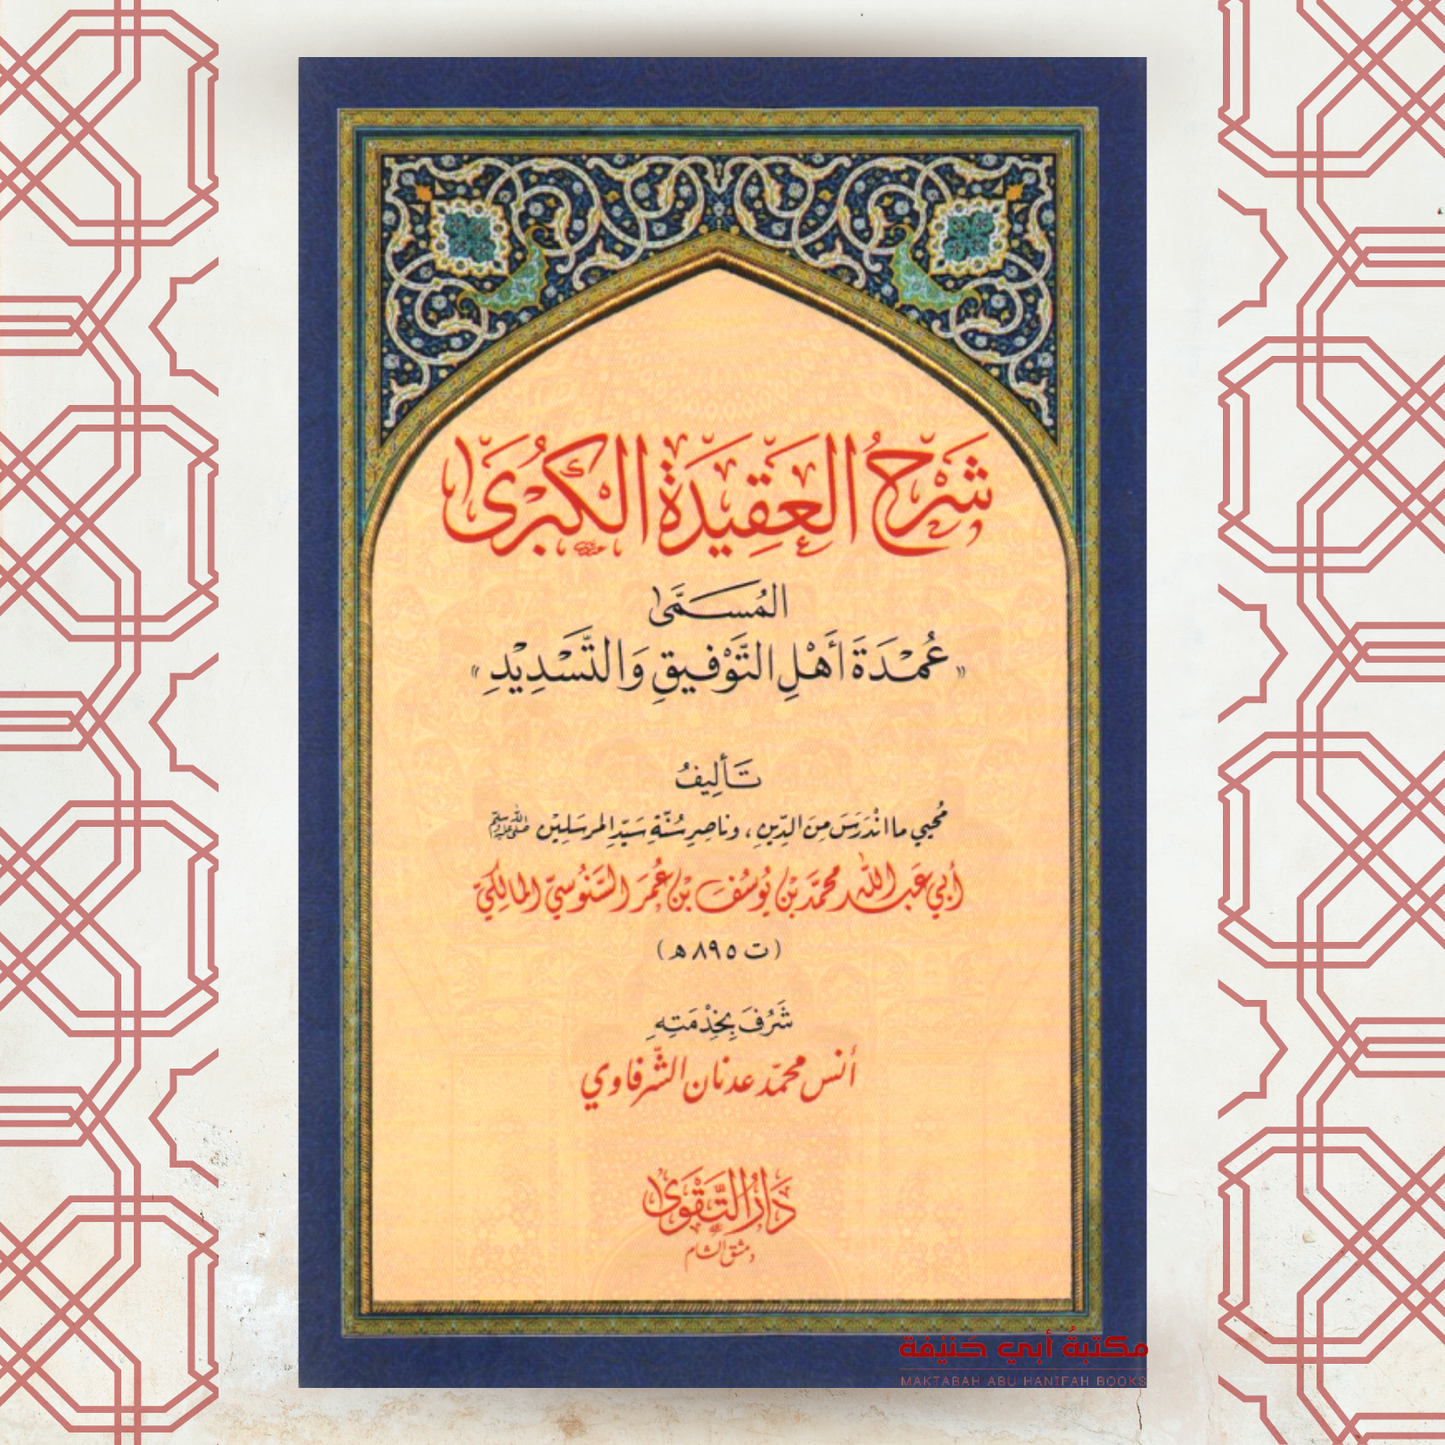 شَرْحُ العَقِيدَةِ الكُبْرَىٰ
المُسَمَّىٰ
«عُمْدَةَ أَهْلِ التَّوْفِيقِ وَالتَّسْدِيْدِ»
تَأليفُ
مُحيي ما انْدَرَسَ مِنَ الدِّينِ، وناصِرِ سُنَّةِ سَيّدِ المرسَلِيْن ﷺ
أبي عَبد اللّٰه محمَّد بْن يُوسُفَ بْن عُمَرَ السَّنُوسيّ المالِكيّ
(ت ٨٩٥ هـ)
شَرُفَ بِخِدْمَتِهِ
أنس محمّد عدنان الشّرفاوي
دَارُ التَّقْوَىٰ
دمشق الشام
مكتبةُ أبي حَنيْفة
MAKTABAH ABU HANIFAH BOOKS